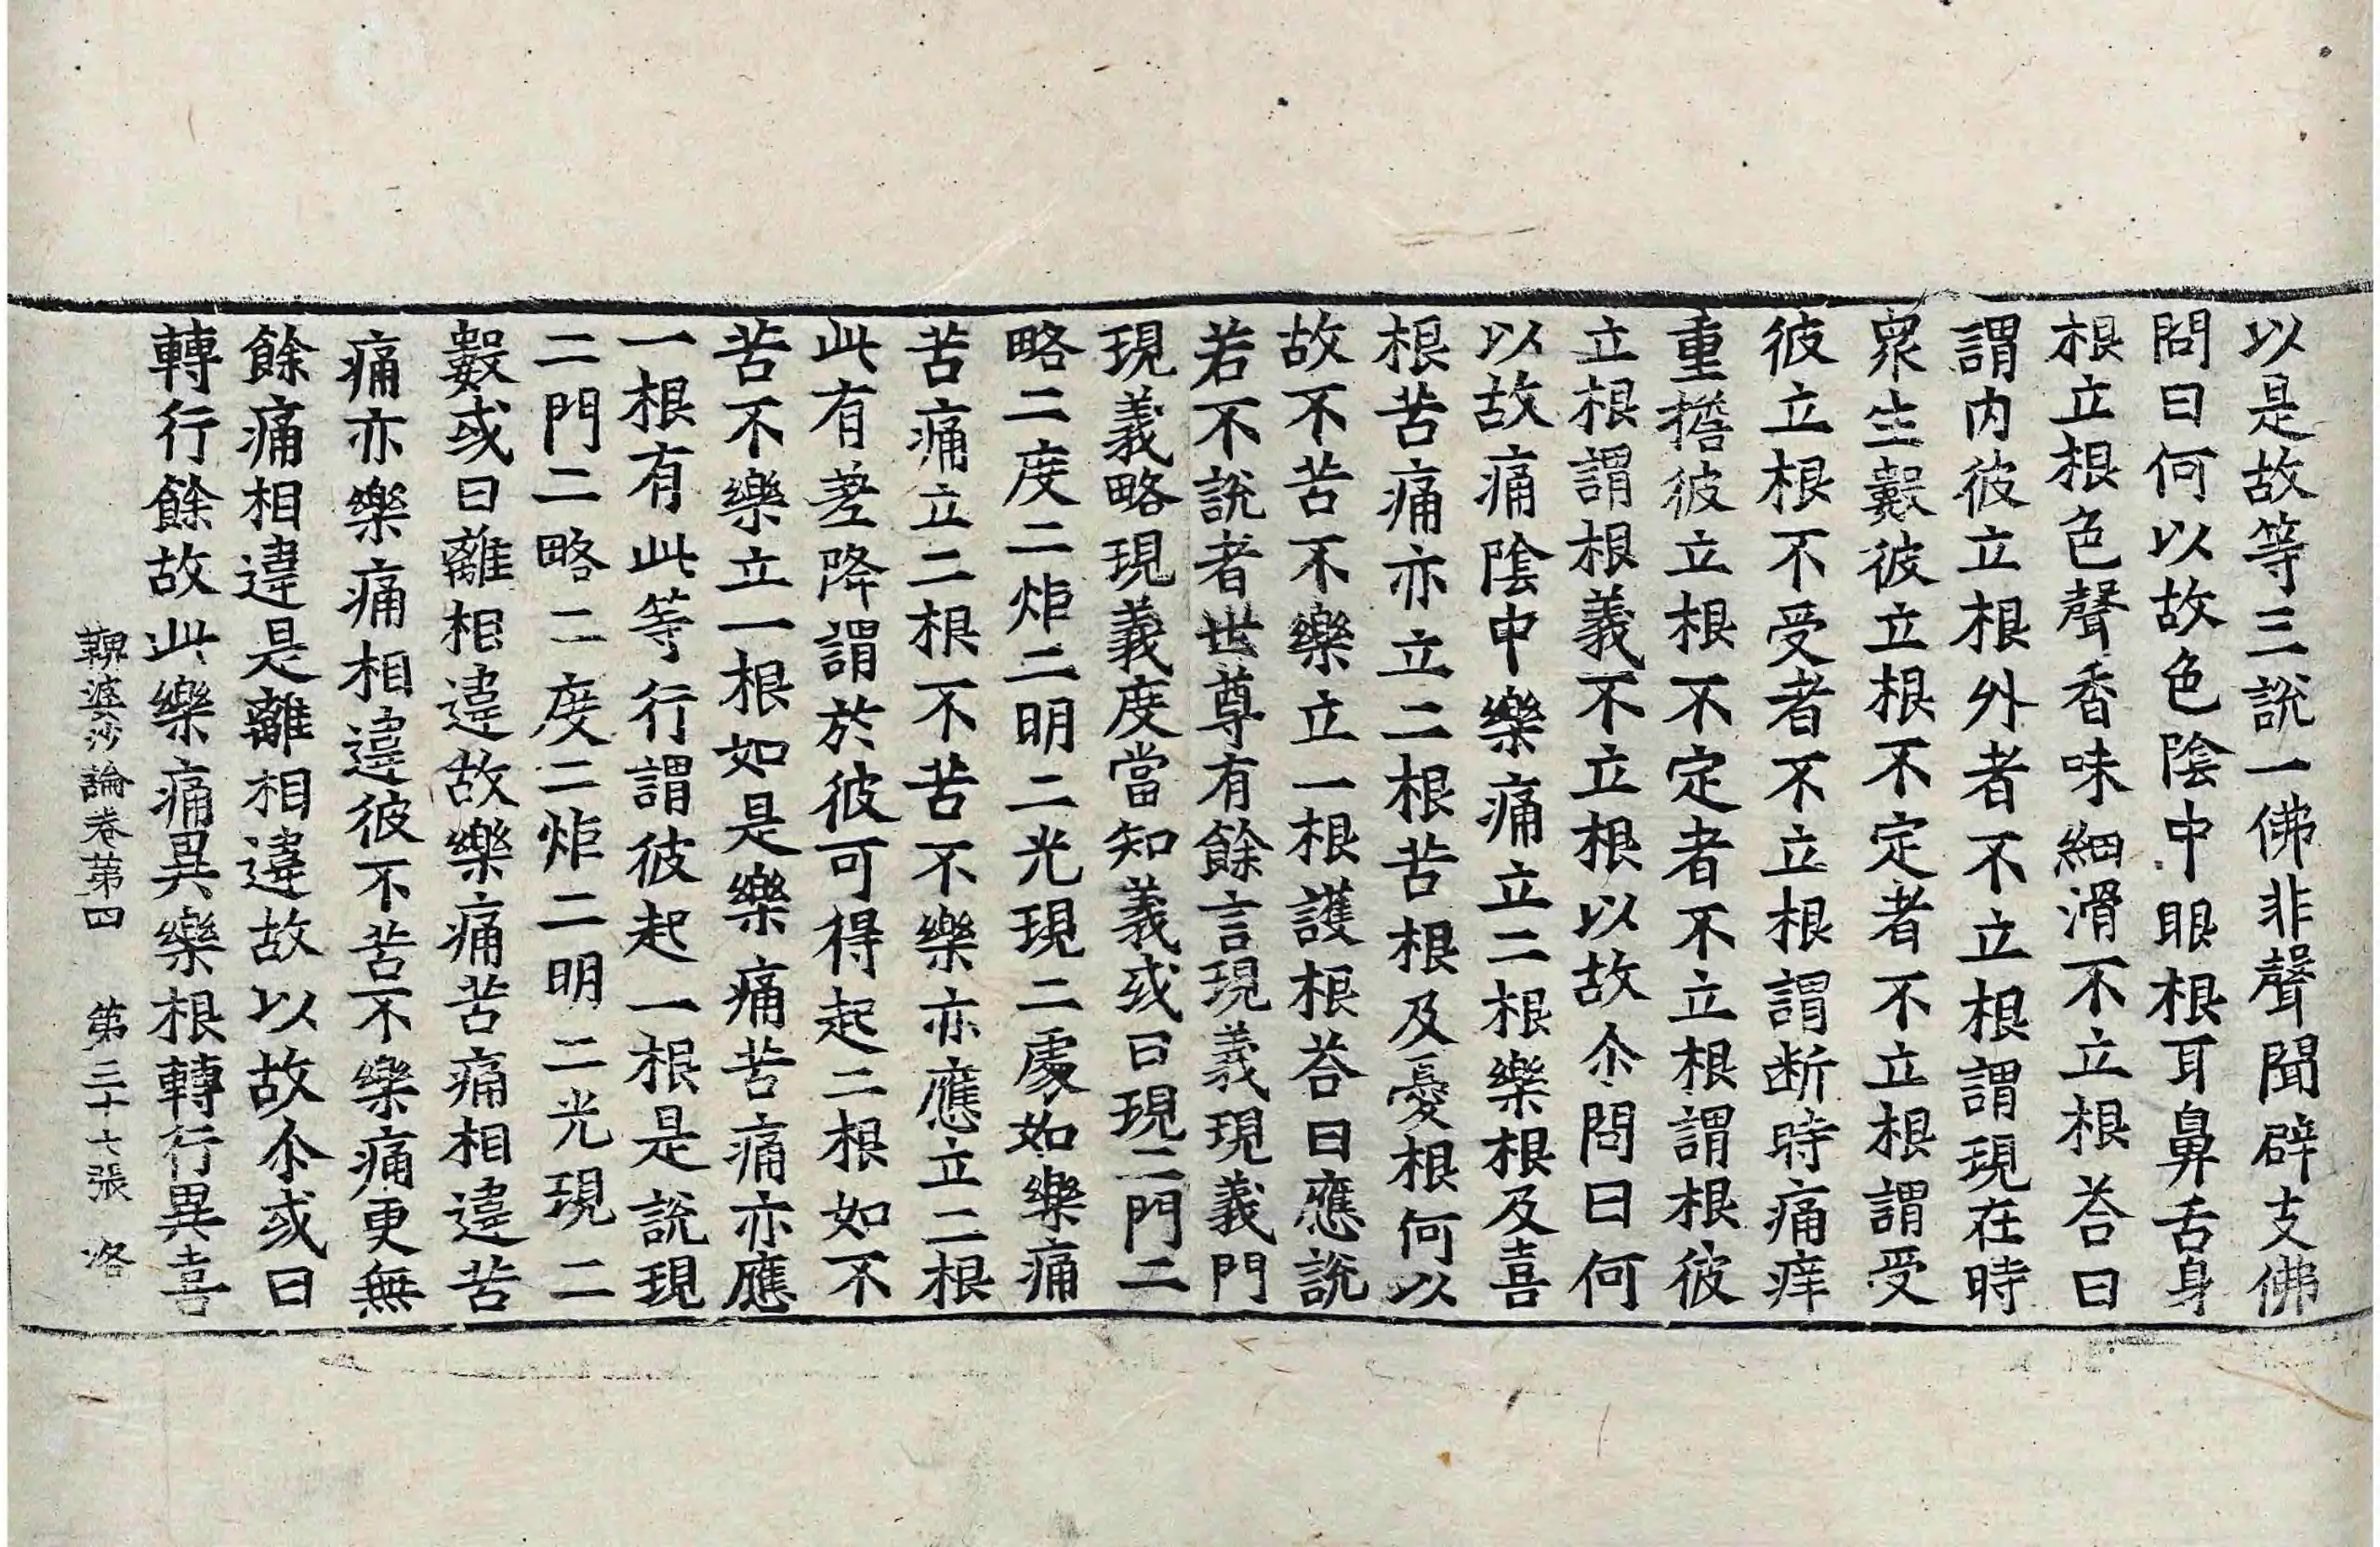 以是故等三說一佛非聲聞辟支佛
問曰何以故色陰中眼根耳鼻舌身
根立根色聲香味細滑不立根荅曰
謂内彼立根外者不立根謂現在時
衆生數彼立根不定者不立根謂受
彼立根不受者不立根謂断時痛痒
重擔彼立根不定者不立根謂根彼
立根謂根義不立根以故尒問曰何
以故痛陰中樂痛立二根樂根及喜
根苦痛亦立二根苦根及憂根何以
故不苦不樂立一根護根荅曰應說
若不說者世尊有餘言現義現義門
現義略現義度當知義或曰現二門二
略二度二炬二明二光現二處如樂痛
苦痛立二根不苦不樂亦應立二根
此有差降謂於彼可得起二根如不
苦不樂立一根如是樂痛苦痛亦應
一根有此等行謂彼起一根是說現
二門二略二度二炬二明二光現二
數或曰離相違故樂痛苦痛相違苦
痛亦樂痛相違彼不苦不樂痛更無
餘痛相違是離相違故以故尒或曰
轉行餘故此樂痛異樂根轉行異喜
鞞婆沙論卷苐四 第三十七張 洛